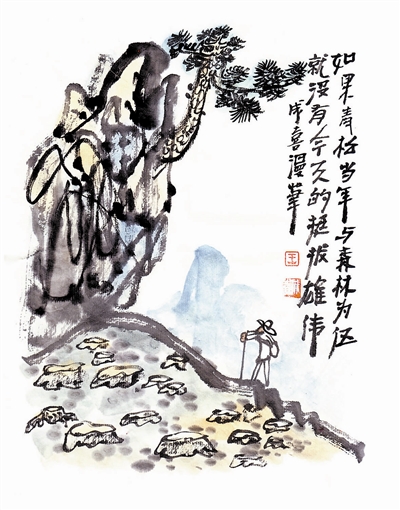 如果青松当年与森林为伍
就没有今天的挺拔雄伟
成喜漫筆
王